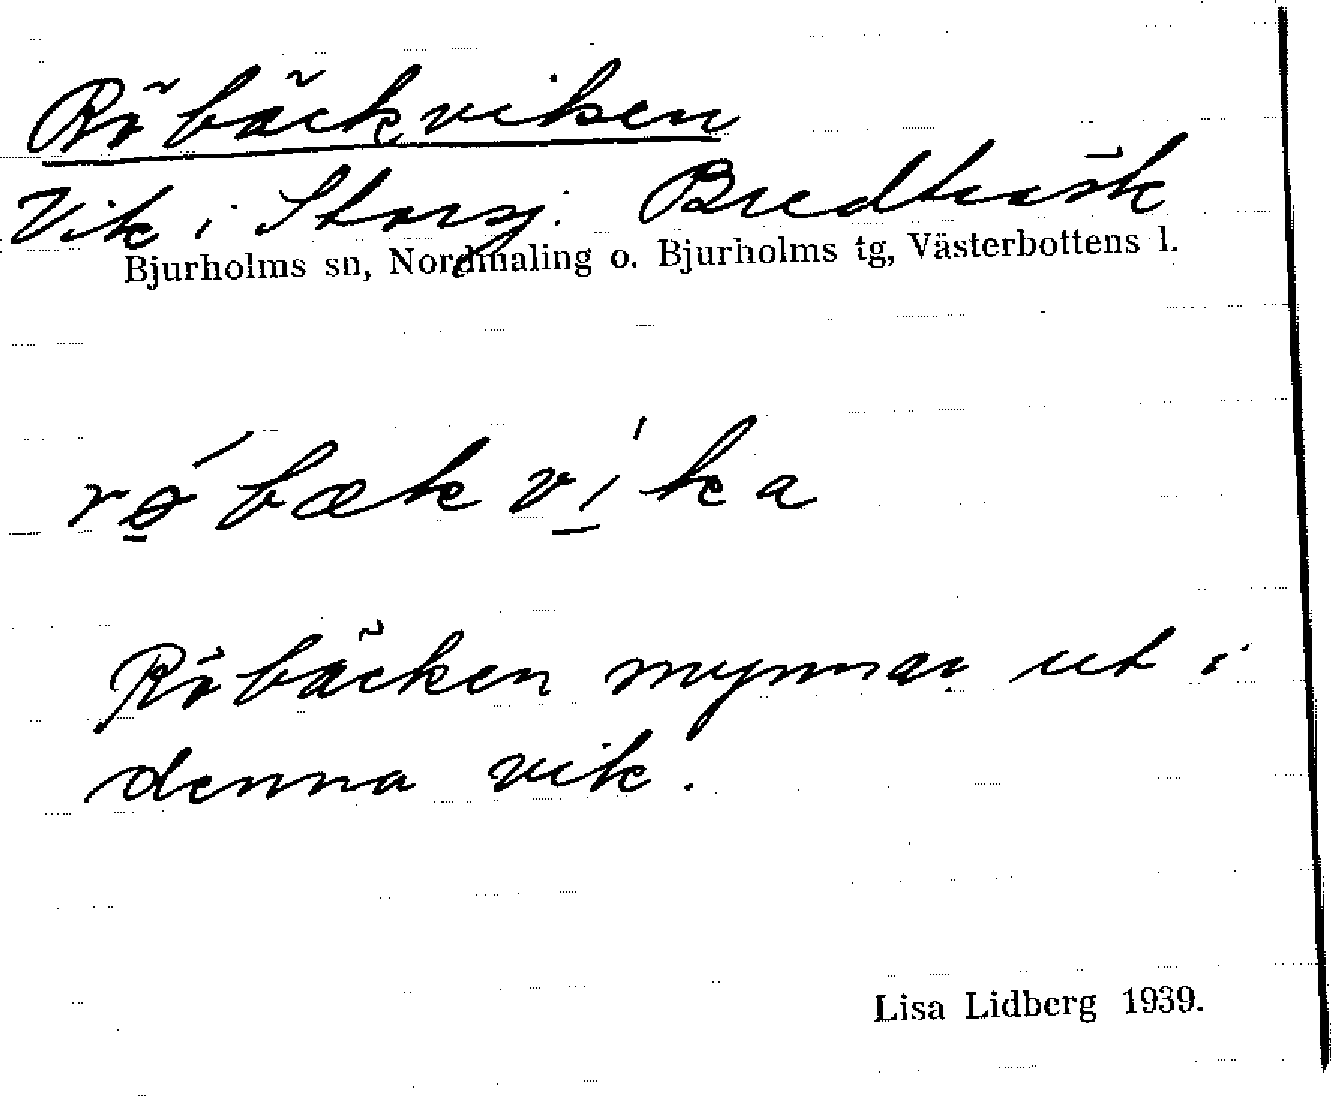 Röbäckviken
Vik i Storsj. Bredträsk
Bjurholms sn, Nordmaling o. Bjurholms tg, Västerbottens l.
rǿ̱bækvi̱̍ka
Röbäcken mynnar ut i
denna vik.
Lisa Lidberg 1939.